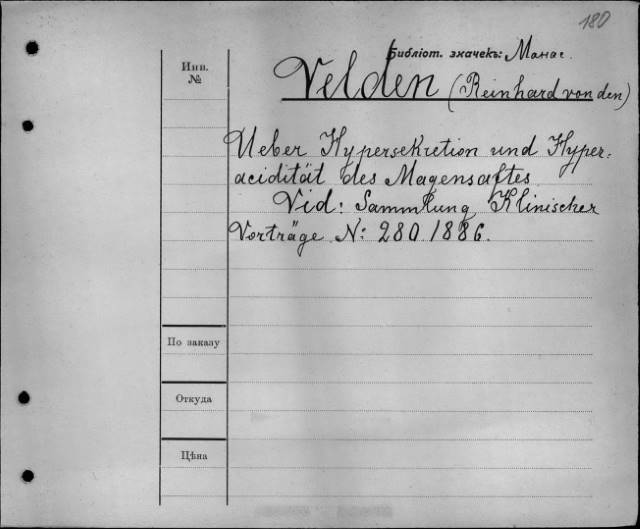 180
Библіот. значекъ: Манас.
Инв. №
Velden (Reinhard von den)
Ueber Hypersekretion und Hyper=
acidität des Magensaftes.
Vid: Sammlung Klinischer
Vorträge N: 280. 1886.
По заказу
Откуда
Цѣна